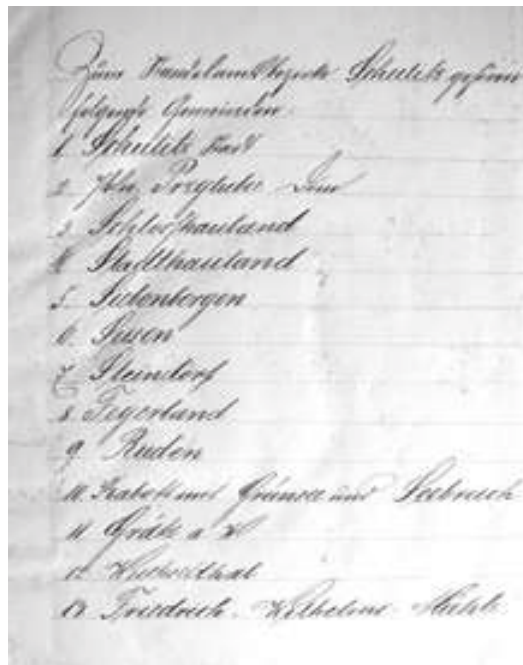 Zum Standesamtsbezirk Schulitz gehören
folgende Gemeinden:
1. Schulitz Stadt
2. 
3. Schlosshauland
4. Stadthauland
5. Seebenbergen
6. 
7. Steindorf
8. Fegerland
9. Ruden
10. Grabott und Grünsee und Seebruch
11. Grätz a W
12. Weichselthal
13. Friedrich-Wilhelms-Mühle